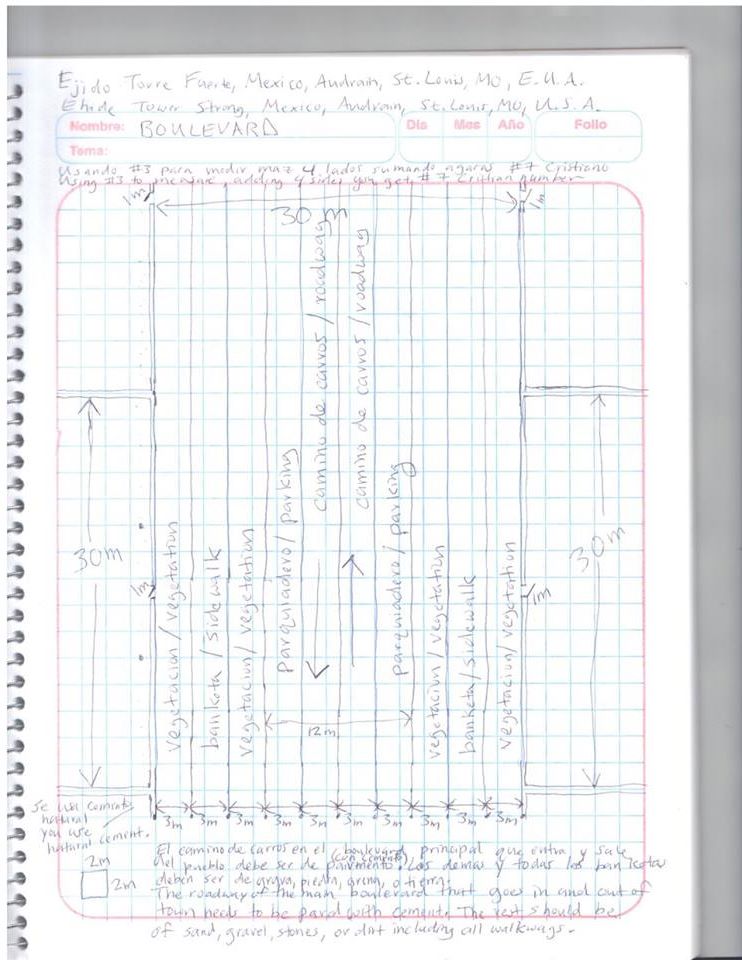 Ejido Torre Fuerte, Mexico, Audrain, St. Louis, MO, E.U.A.
Ehide Tower Strong, Mexico, Audrain, St. Louis, MO, U.S.A.
Nombre: BOULEVARD Dis Mes Año Folio
Tema:
Usando #3 para medir, maz 4 lados sumando agaras #7 Cristiano
Using #3 to measure, adding 4 sides you get #7 Cristian number
1m 30m 1m
camino de carros / roadway
camino de carros / roadway
30m
1m
vegetacion / vegetation
banketa / sidewalk
vegetacion / vegetation
parquiadero / parking
parquiadero / parking
vegetacion / vegetation
banketa / sidewalk
vegetacion / vegetation
1m
30m
12m
3m 3m 3m 3m 3m 3m 3m 3m 3m 3m
Se usa cemento
natural
you use
natural cement.
2m
2m
El camino de carros en el boulevard principal que entra y sale
del pueblo debe ser de pavimento (con cemento). Los demas y todas los banketas
deben ser de grava, piedra, o tierra.
The roadway of the main boulevard that goes in and out of
town needs to be pavd with cement. The rest should be
of sand, gravel, stones, or dirt including all walkways.